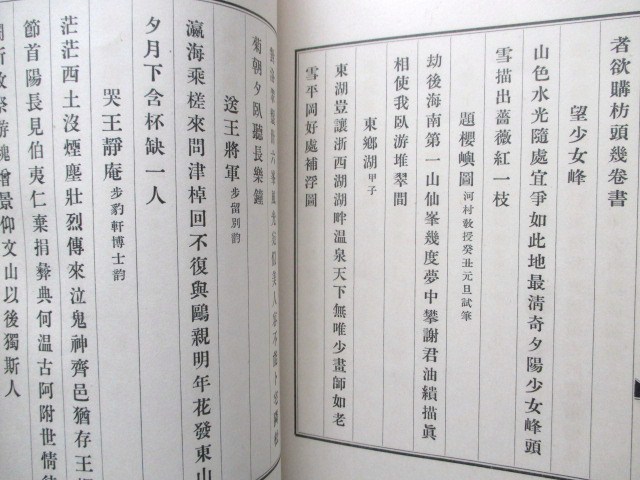 者欲購枋頭幾卷書
望少女峰
山色水光隨處宜爭如此地最淸奇夕陽少女峰頭
雪描出薔薇紅一枝
題櫻嶼圖 河村敎授癸丑元旦試筆
劫後海南第一山仙峯幾度夢中攀謝君油繢描眞
相使我臥游堆翠間
東鄉湖 甲子
東湖豈讓浙西湖湖畔温泉天下無唯少畫師如老
雪平岡好處補浮圖
菊朝夕臥聽長樂鐘
送王將軍 步留別韵
瀛海乘槎來問津棹回不復與鷗親明年花發東山
夕月下含杯缺一人
哭王靜庵 步豹軒博士韵
茫茫西土沒煙塵壯烈傳來泣鬼神齊邑猶存王
節首陽長見伯夷仁棄捐彝典何温古阿附世情
魂曾景仰文山以後獨斯人